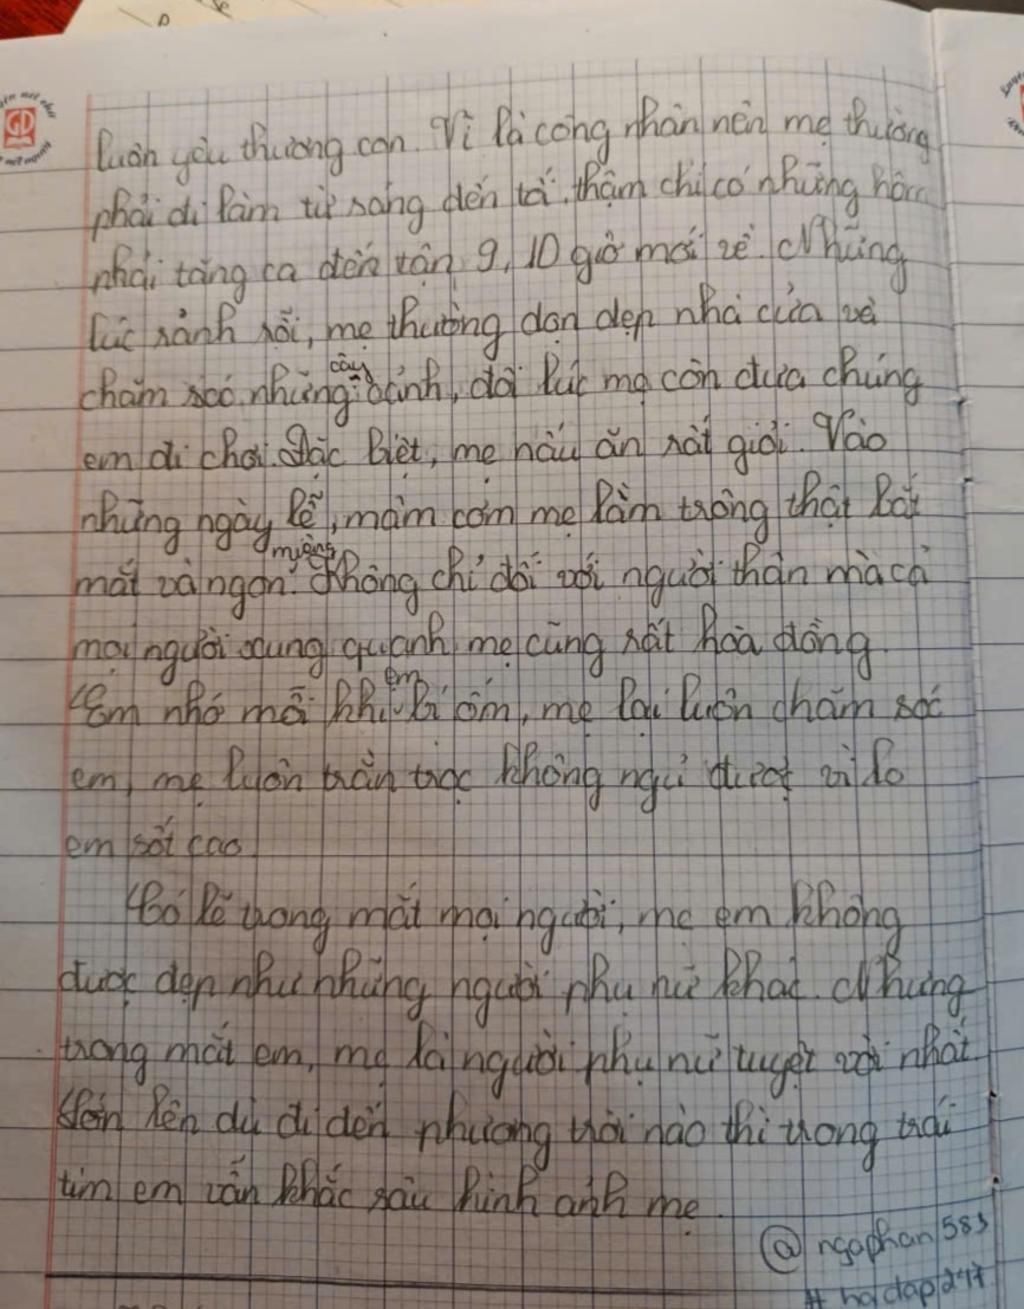 GD
luôn yêu thương con. Vì là công nhân nên mẹ thường
phải đi làm từ sáng đến tối, thậm chí có những hôm
phải tăng ca đến tận 9, 10 giờ mới về. Những
lúc rảnh rỗi, mẹ thường dọn dẹp nhà cửa và
chăm sóc những cây cảnh, đôi lúc mẹ còn đưa chúng
em đi chơi. Đặc biệt, mẹ nấu ăn rất giỏi. Vào
những ngày lễ, mâm cơm mẹ làm trông thật bắt
mắt và ngon miệng. Không chỉ đối với người thân mà cả
mọi người xung quanh mẹ cũng rất hoà đồng.
Em nhớ mãi khi em bị ốm, mẹ lại luôn chăm sóc
em, mẹ luôn trằn trọc không ngủ được vì lo
em sốt cao
Có lẽ trong mắt mọi người, mẹ em không
được đẹp như những người phụ nữ khác. Nhưng
trong mắt em, mẹ là người phụ nữ tuyệt vời nhất.
lớn lên dù đi đến phương trời nào thì trong trái
tim em vẫn khắc sâu hình ảnh mẹ.
@ngaphan583
#hoidap247